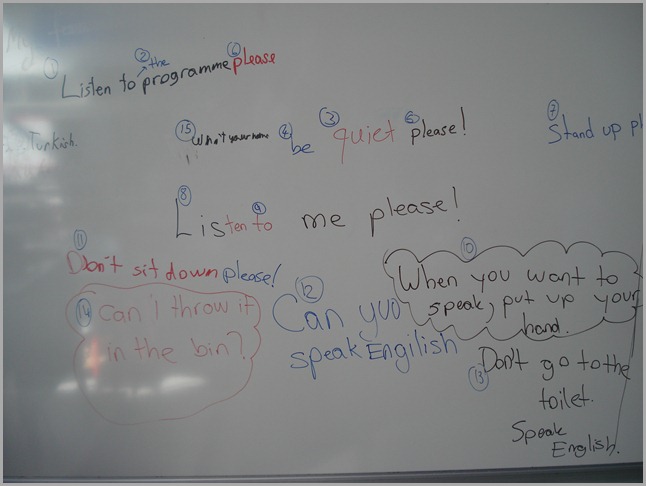 ① ② the ⑥
Listen to programme please
Turkish.
⑮ What your name ④ be ③ quiet ⑤ please!
⑦
Stand up pl
⑧ ⑨
Listen to me please!
⑪
Don't sit down please!
⑩
When you want to
speak, put up your
hand.
⑭ can I throw it
in the bin?
⑫
Can yuo
speak Engilish
⑬ Don't go to the
toilet.
Speak
English.